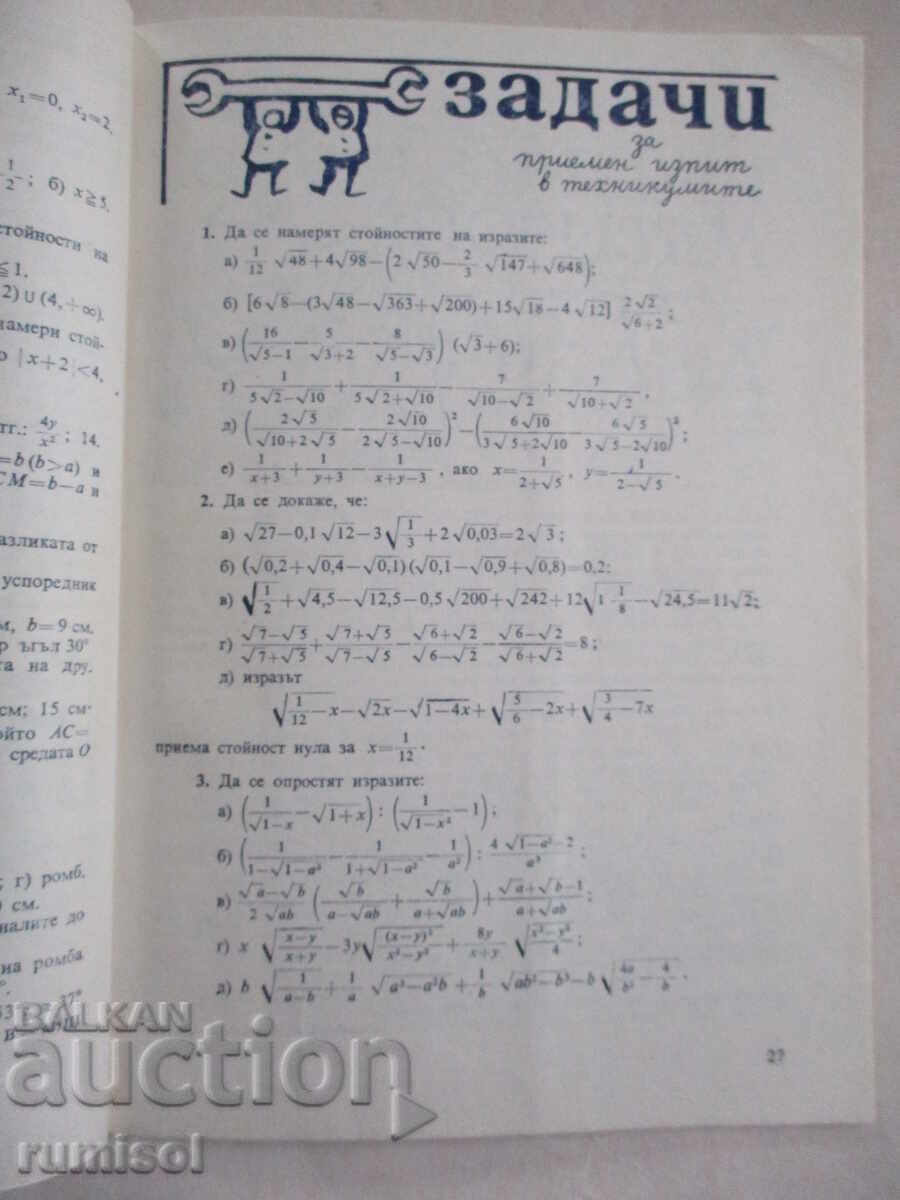 x₁=0, x₂=2.
1/2; б) x≧5.
стойности на
≦1.
2) ∪ (4, +∞).
намери стой-
|x+2|<4,
тг.: 4y/x²; 14.
=b (b>a) и
CM=b−a и
азликата от
успоредник
м, b=9 см.
р ъгъл 30°
та на дру.
см; 15 см.
ойто AC=
средата O
; г) ромб.
см.
налите до
на ромба
ЗАДАЧИ
за
приемен изпит
в техникумите
1. Да се намерят стойностите на изразите:
а) 1/12 √48+4√98−(2√50−2/3 √147+√648);
б) [6√8−(3√48−√363+√200)+15√18−4√12] 2√2/√6+2;
в) (16/√5−1 − 5/√3+2 − 8/√5−√3) (√3+6);
г) 1/5√2−√10 + 1/5√2+√10 − 7/√10−√2 + 7/√10+√2,
д) (2√5/√10+2√5 − 2√10/2√5−√10)² − (6√10/3√5+2√10 − 6√5/3√5−2√10)²;
е) 1/x+3 + 1/y+3 − 1/x+y−3, ако x=1/2+√5, y=1/2−√5.
2. Да се докаже, че:
а) √27−0,1√12−3√1/3+2√0,03=2√3;
б) (√0,2+√0,4−√0,1)(√0,1−√0,9+√0,8)=0,2:
в) √1/2+√4,5−√12,5−0,5√200+√242+12√1 1/8−√24,5=11√2;
г) √7−√5/√7+√5 + √7+√5/√7−√5 − √6+√2/√6−√2 − √6−√2/√6+√2=8;
д) изразът
√1/12−x−√2x−√1−4x+√5/6−2x+√3/4−7x
приема стойност нула за x=1/12.
3. Да се опростят изразите:
а) (1/√1−x−√1+x) : (1/√1−x²−1);
б) (1/1−√1−a²−1/1+√1−a²−1/a²) : 4√1−a²−2/a³;
в) √a−√b/2√ab (√b/a−√ab+√b/a+√ab)+√a+√b−1/a+√ab;
г) x √x−y/x+y−3y√(x−y)²/x²−y²+8y/x+y √x²−y²/4;
д) b √1/a−b+1/a √a³−a²b+1/b √ab²−b³−b√4a/b²−4/b.
27
BALKAN
auction
rumisol